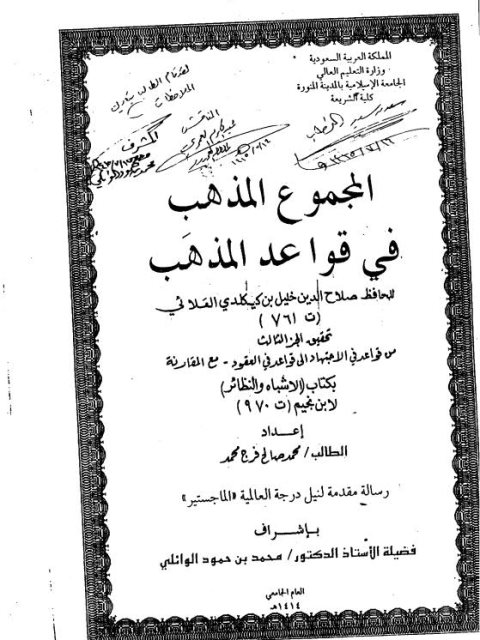 المملكة العربية السعودية
وزارة التعليم العالي
الجامعة الإسلامية بالمدينة المنورة
كلية الشريعة
لقد قام الطالب
الملاحظات
المناقش
المشرف
المجموع المذهب
في قواعد المذهَب
للحافظ صلاح الدين خليل بن كيكلدي العلائي
(ت ٧٦١)
تحقيق الجزء الثالث
من قواعد في الاجتهاد الى قواعد في العقود - مع المقارنة
بكتاب (الأشباه والنظائر)
لابن نجيم (ت ٩٧٠)
إعداد
الطالب / محمد صالح فرج محمد
رسالة مقدمة لنيل درجة العالمية «الماجستير»
بإشراف
فضيلة الأستاذ الدكتور / محمد بن حمود الوائلي
العام الجامعي
١٤١٤هـ